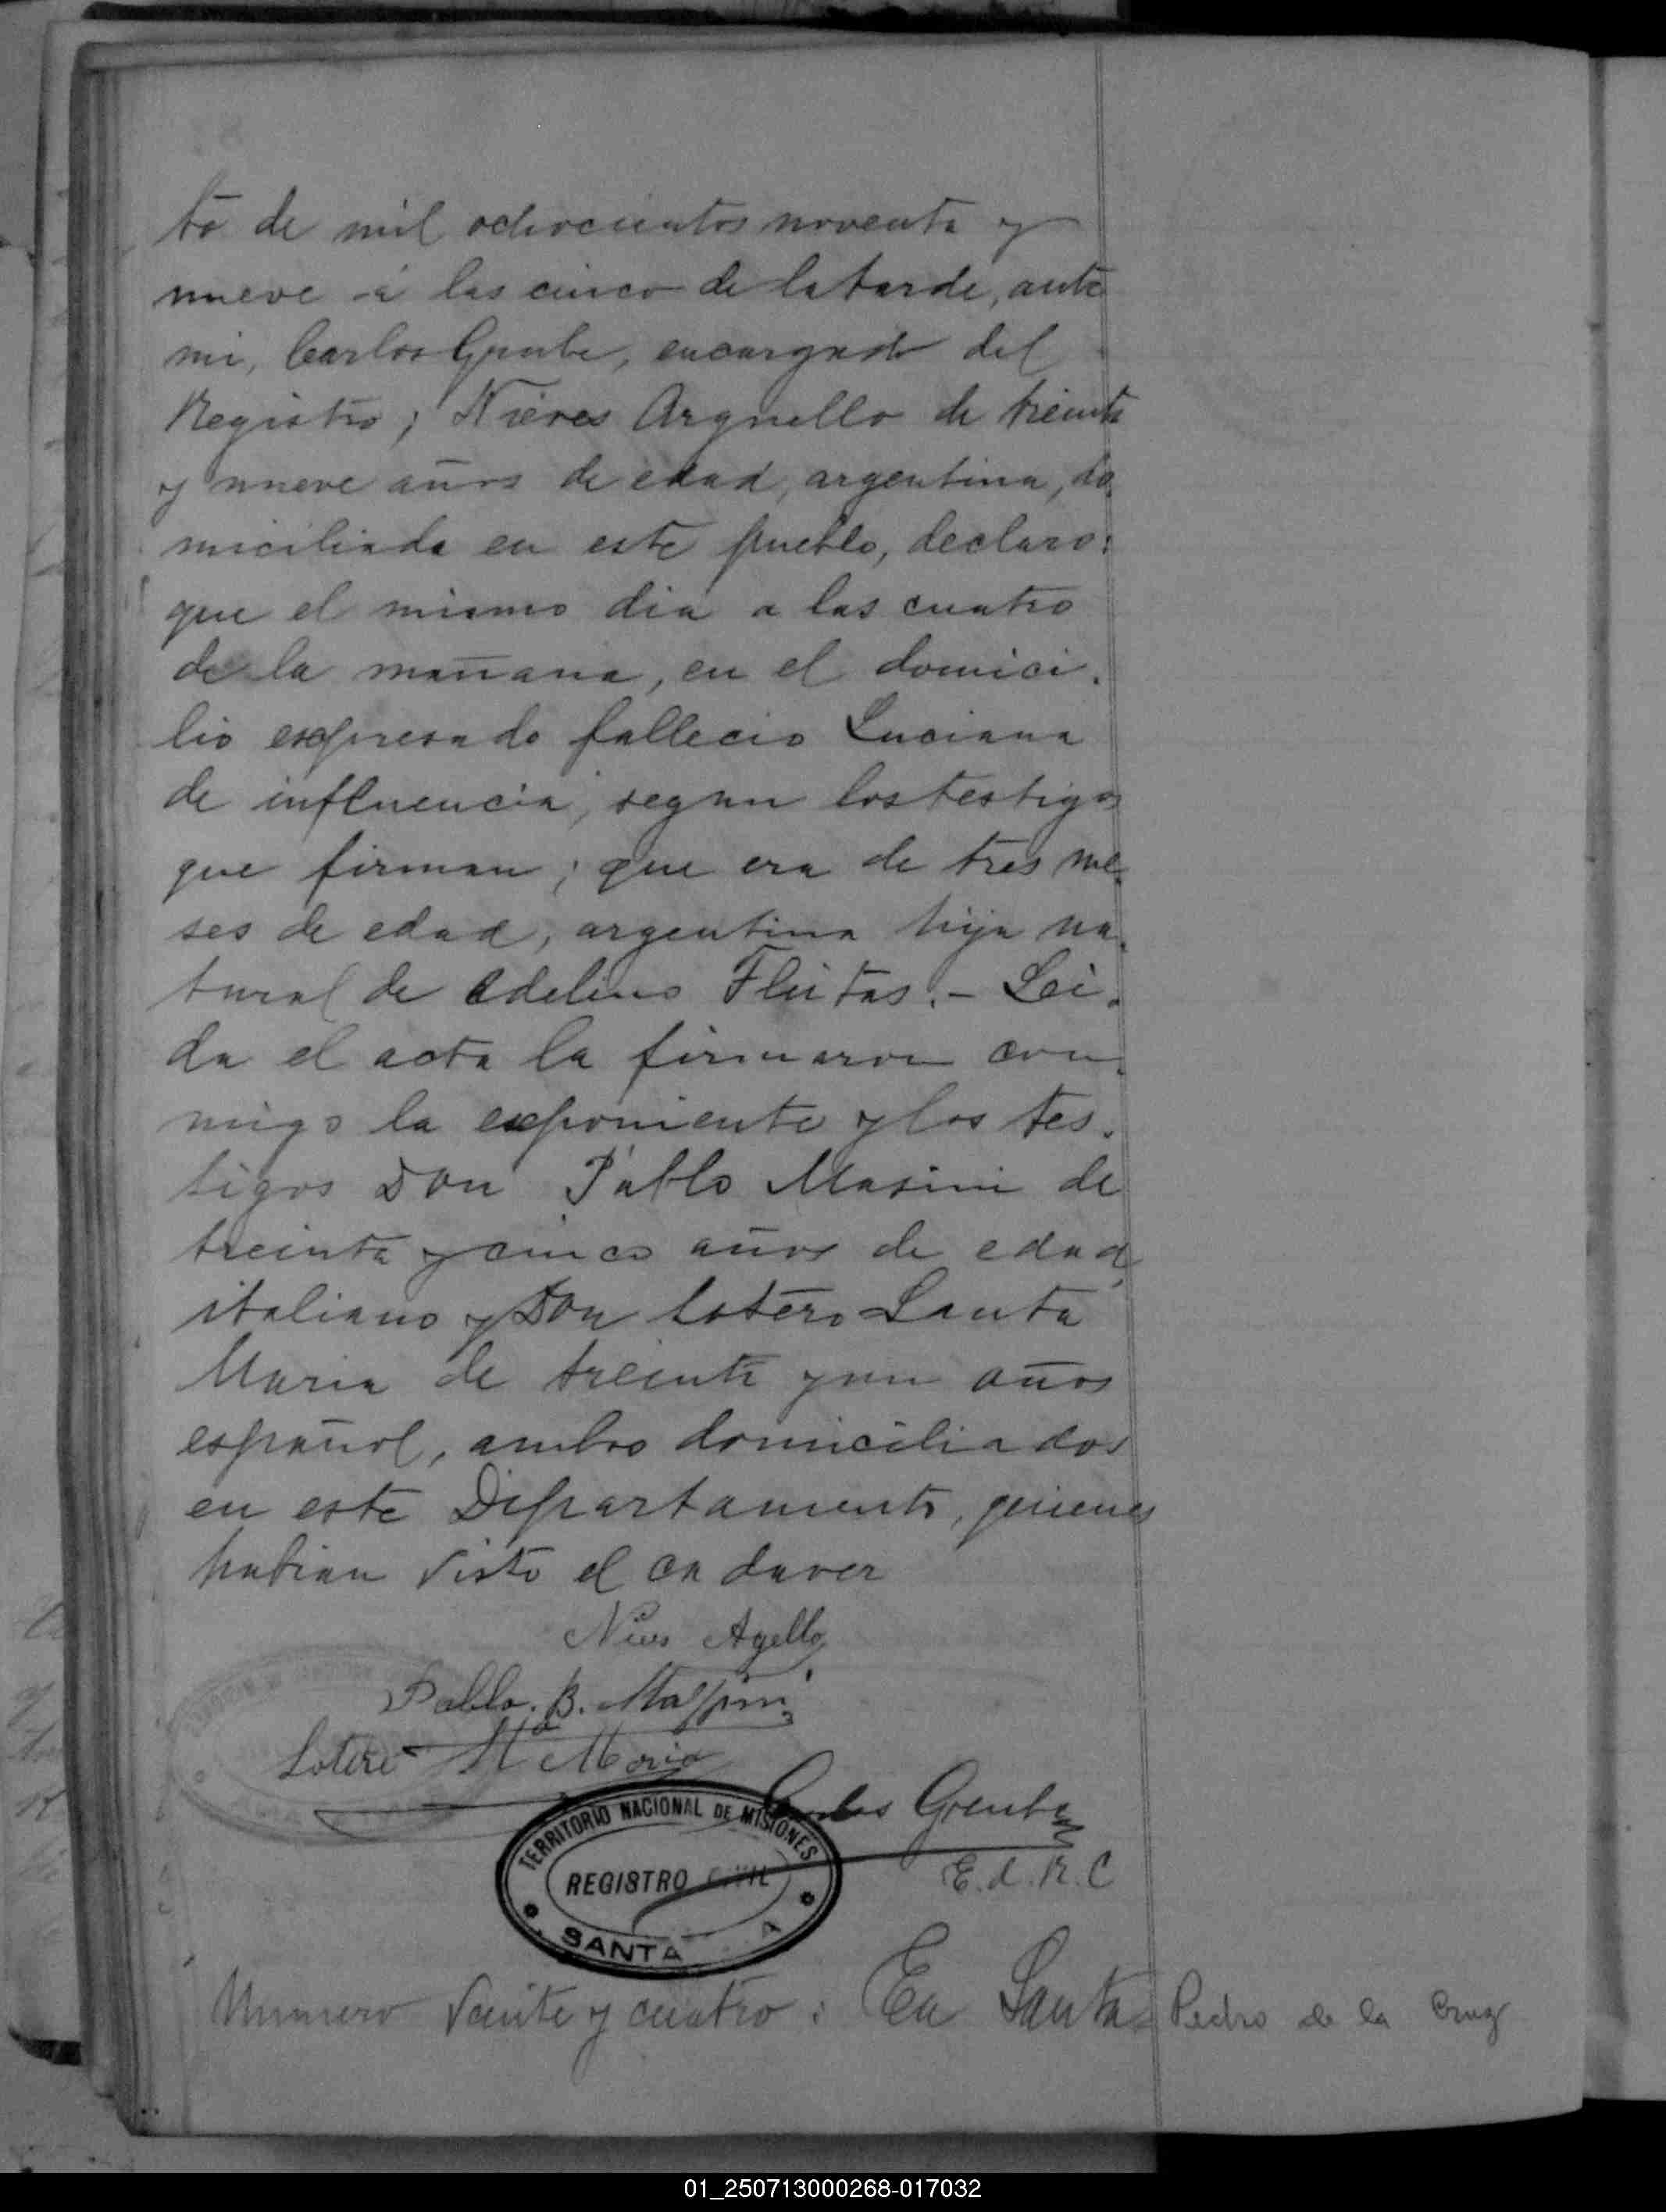 to de mil ochocientos noventa y
nueve á las cinco de la tarde, ante
mi, Carlos Grube, encargado del
Registro; Nieves Arguello de treinta
y nueve años de edad, argentina, do
miciliada en este pueblo, declaro:
que el mismo dia a las cuatro
de la mañana, en el domici.
lio expresado fallecio Luciana
de influencia, segun los testigos
que firman; que era de tres me.
ses de edad, argentina hija na.
tural de Adelino Fleitas. - Lei.
da el acta la firmaron con.
migo la exponiente y los tes.
tigos Don Pablo Masini de
treinta y cinco años de edad,
italiano y Don Sotero Santa
Maria de treinta y un años
español, ambos domiciliados
en este Departamento, quienes
habian visto el cadaver
Nieves Agello
Pablo. B. Massini
Sotero Sta Maria
Carlos Grube
E. d. R. C
TERRITORIO NACIONAL DE MISIONES
REGISTRO CIVIL
SANTA A
Numero Veinte y cuatro: En Santa Pedro de la Cruz
01_250713000268-017032